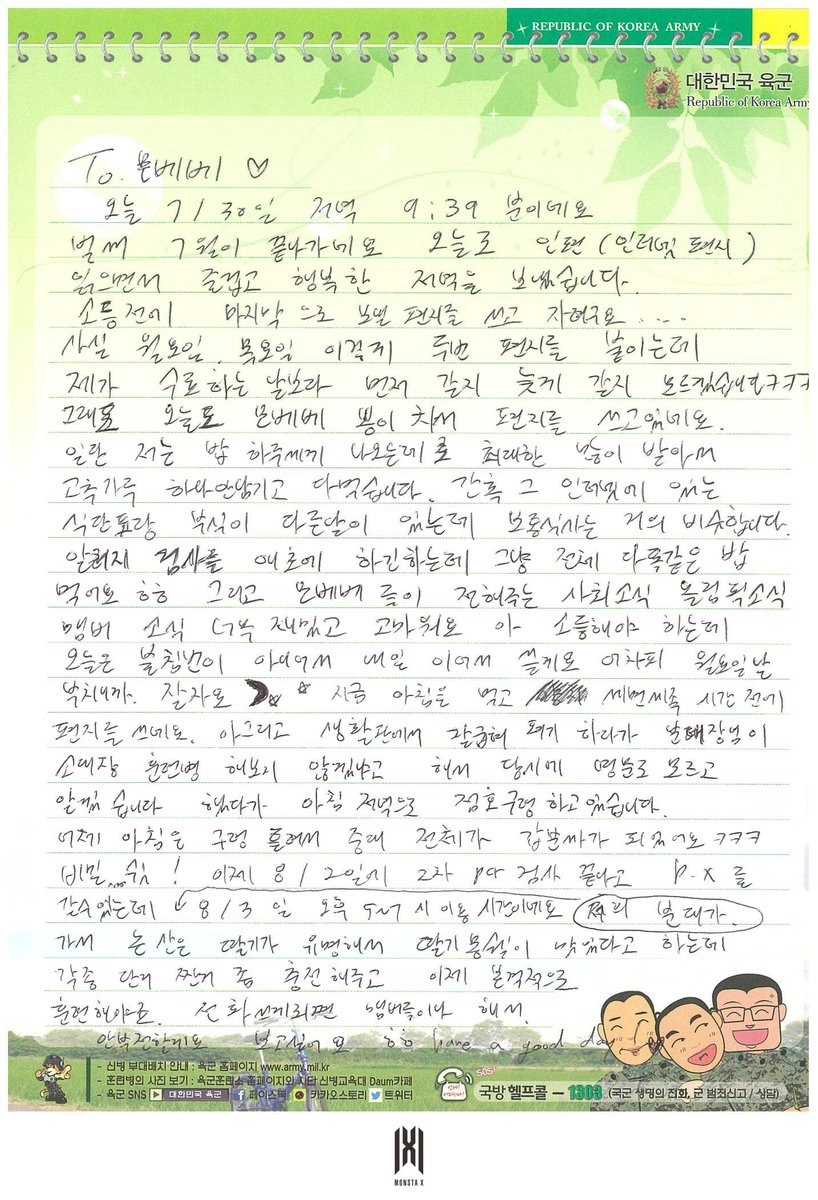 REPUBLIC OF KOREA ARMY
대한민국 육군
Republic of Korea Army
To. 몬베베 ♡
오늘 7/30일 저녁 9:39 분이네요
벌써 7월이 끝나가네요 오늘도 인편(인터넷 편지)
읽으면서 즐겁고 행복한 저녁을 보냈습니다.
소등전에 마지막으로 보낼 편지를 쓰고 자려구요....
사실 월요일, 목요일 이렇게 두번 편지를 붙이는데
제가 수료하는 날보다 먼저 갈지 늦게 갈지 모르겠습니다ㅋㅋㅋ
그래도 오늘도 몬베베 뽕이 차서 편지를 쓰고있네요.
일단 저는 밥 하루세끼 나오는데 최대한 많이 받아서
고춧가루 하나안남기고 다먹습니다. 간혹 그 인터넷에 있는
식단표랑 부식이 다른날이 있는데 보통식사는 거의 비슷합니다.
알러지 검사를 애초에 하긴하는데 그냥 전체 다똑같은 밥
먹어요 ㅎㅎ 그리고 몬베베들이 전해주는 사회소식 올림픽소식
멤버 소식 너무 재밌고 고마워요 아 소등해야 하는데
오늘은 불침번이 아니어서 내일 이어서 쓸게요 어차피 월요일날
부치니까. 잘자요 지금 아침을 먹고 세면세족 시간 전에
편지를 쓰네요. 아그리고 생활관에서 팔굽혀 펴기 하다가 분대장님이
소대장 훈련병 해보지 않겠냐고 해서 당시에 명분도 모르고
알겠습니다 했다가 아침 저녁으로 점호구령 하고있습니다.
어제 아침은 구령 틀려서 중대 전체가 갑분싸가 되었어요 ㅋㅋㅋ
비밀...쉿! 이제 8/2일에 2차 pcr 검사 끝나고 P.X를
갈수있는데 8/3일 오후 시 이용 시간이네요 저희 분대가.
가서 논산은 딸기가 유명해서 딸기몽쉘이 맛있다고 하는데
각종 단거 짠거 좀 충전해주고 이제 본격적으로
훈련해야죠. 전화 멤버들이나 해서
안부전할게요 보고싶어요 ㅎㅎ have a good day
- 신병 부대배치 안내 : 육군 홈페이지 www.army.mil.kr
- 훈련병의 사진 보기 : 육군훈련소 홈페이지와 사단 신병교육대 Daum카페
- 육군 SNS 대한민국 육군 페이스북 카카오스토리 트위터
SOS!
국방헬프콜 - 1303 (국군 생명의 전화, 군 범죄신고 / 상담)
MONSTA X